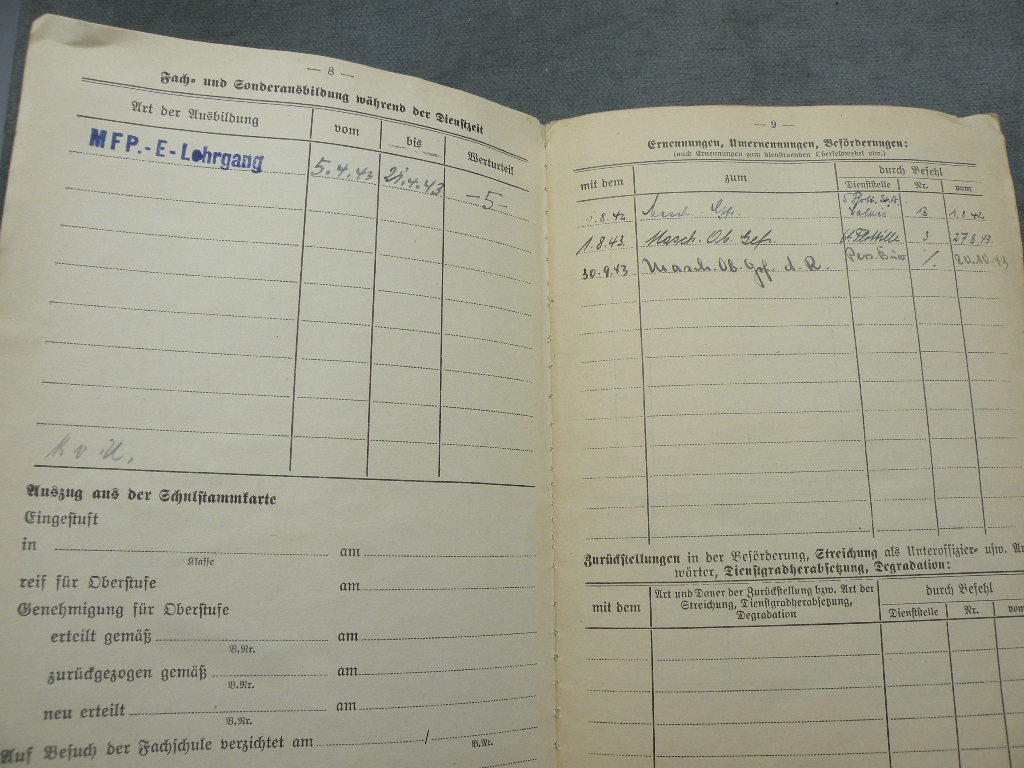 — 8 —
Fach- und Sonderausbildung während der Dienstzeit
Art der Ausbildung vom bis Werturteil
MFP.-E-Lehrgang 5.4.43 21.4.43 -5-
k v U.
Auszug aus der Schulstammkarte
Eingestuft
in am
Klasse
reif für Oberstufe am
Genehmigung für Oberstufe
erteilt gemäß am
B.Nr.
zurückgezogen gemäß am
B.Nr.
neu erteilt am
B.Nr.
Auf Besuch der Fachschule verzichtet am /
B.Nr.
— 9 —
Ernennungen, Umernennungen, Beförderungen:
(auch Ernennungen zum diensttuenden Oberfeldwebel usw.)
mit dem zum durch Befehl
Dienststelle Nr. vom
1.8.42 Masch. Gfr. Calais 13 1.8.42
1.8.43. Masch. Ob. Gef. Flottille 3 27.8.43
30.9.43 Masch. Ob. Gef. d. R. Pers. Büro /. 20.10.43
Zurückstellungen in der Beförderung, Streichung als Unteroffizier- usw. An
wärter, Dienstgradherabsetzung, Degradation:
mit dem Art und Dauer der Zurückstellung bzw. Art der Streichung, Dienstgradherabsetzung, Degradation durch Befehl
Dienststelle Nr. vom